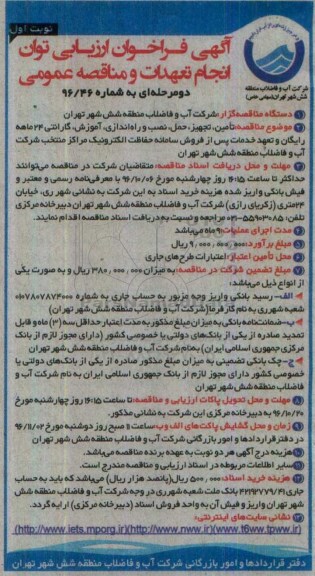 نوبت اول
آگهی فراخوان ارزیابی توان
انجام تعهدات و مناقصه عمومی
دومرحله‌ای به شماره ۹۶/۴۶
شرکت آب و فاضلاب منطقه
شش شهر تهران (سهامی خاص)
۱) دستگاه مناقصه‌گزار: شرکت آب و فاضلاب منطقه شش شهر تهران
۲) موضوع مناقصه: تأمین، تجهیز، حمل، نصب و راه‌اندازی، آموزش، گارانتی ۲۴ ماهه
رایگان و تعهد خدمات پس از فروش سامانه حفاظت الکترونیک مراکز منتخب شرکت
آب و فاضلاب منطقه شش شهر تهران
۳) مهلت و محل دریافت اسناد مناقصه: متقاضیان شرکت در مناقصه می‌توانند
حداکثر تا ساعت ۱۶:۱۵ روز چهارشنبه مورخ ۹۶/۱۰/۰۶ با معرفی‌نامه رسمی و معتبر و
فیش بانکی واریز شده هزینه خرید اسناد به این شرکت به نشانی شهر ری، خیابان
۲۴متری (زکریای رازی) شرکت آب و فاضلاب منطقه شش شهر تهران دبیرخانه مرکزی
تلفن: ۵۵۹۰۳۰۸۵-۰۲۱ مراجعه و نسبت به دریافت اسناد مناقصه اقدام نمایند.
۴) مدت اجرای عملیات: ۹ ماه می‌باشد
۵) مبلغ برآورد: ۹,۰۰۰,۰۰۰,۰۰۰ ریال
۶) محل تأمین اعتبار: اعتبارات طرح‌های جاری
۷) مبلغ تضمین شرکت در مناقصه: به میزان ۳۸۰,۰۰۰,۰۰۰ ریال و به صورت یکی
از انواع ذیل می‌باشد:
الف- رسید بانکی واریز وجه مزبور به حساب جاری به شماره ۰۱۰۷۸۰۷۸۷۴۰۰۰
شعبه شهرری به نام کارفرما (شرکت آب و فاضلاب منطقه شش شهر تهران)
ب- ضمانت‌نامه بانکی به میزان مبلغ مذکور به مدت اعتبار حداقل سه (۳) ماه و قابل
تمدید صادره از یکی از بانک‌های دولتی یا خصوصی کشور (دارای مجوز لازم از بانک
مرکزی جمهوری اسلامی ایران) به نام شرکت آب و فاضلاب منطقه شش شهر تهران
ج- چک بانکی تضمینی به میزان مبلغ مذکور صادره از یکی از بانک‌های دولتی یا
خصوصی کشور دارای مجوز لازم از بانک جمهوری اسلامی ایران به نام شرکت آب و
فاضلاب منطقه شش شهر تهران
۸) مهلت و محل تحویل پاکات ارزیابی و مناقصه: تا ساعت ۱۶:۱۵ روز چهارشنبه مورخ
۹۶/۱۰/۲۰ به دبیرخانه مرکزی این شرکت به نشانی مذکور.
۹) زمان و محل گشایش پاکت‌های الف و ب: ساعت ۱۰ صبح روز دوشنبه مورخ ۹۶/۱۱/۰۲
در دفتر قراردادها و امور بازرگانی شرکت آب و فاضلاب منطقه شش شهر تهران
۱۰) هزینه درج آگهی هر دو نوبت به عهده برنده مناقصه می‌باشد.
۱۱) سایر اطلاعات مربوطه در اسناد ارزیابی و مناقصه مندرج است.
۱۲) هزینه خرید اسناد: ۵۰۰,۰۰۰ ریال (پانصد هزار ریال) می‌باشد که باید به حساب
جاری ۴۲۱۹۲۷۷۹/۴۱ بانک ملت شعبه شهرری در وجه شرکت آب و فاضلاب منطقه شش
شهر تهران واریز و فیش آن به واحد فروش اسناد (دبیرخانه مرکزی) ارایه گردد.
۱۳) نشانی سایت‌های اینترنتی:
(http://www.iets.mporg.ir)(http://www.nww.ir)(www.t6ww.tpww.ir)
دفتر قراردادها و امور بازرگانی شرکت آب و فاضلاب منطقه شش شهر تهران